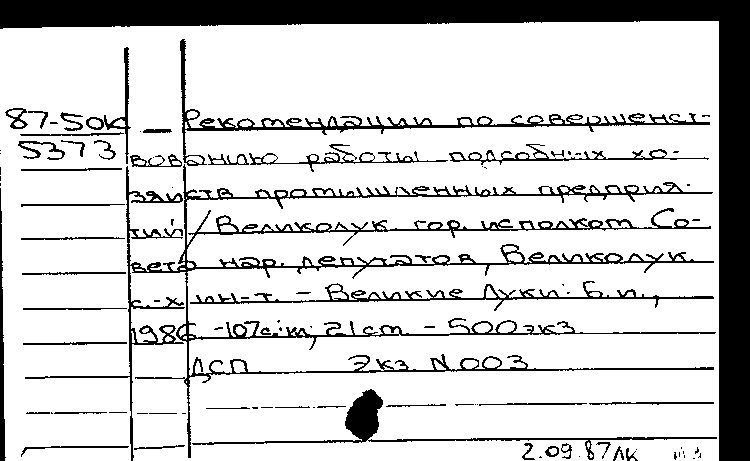 87-50К — Рекомендации по совершенст-
5373 вованию работы подсобных хо-
зяйств промышленных предприя-
тий / Великолук. гор. исполком Со-
вета нар. депутатов, Великолук.
с.-х. ин-т. - Великие Луки: Б.и.,
1986. - 107с.; 21 ст. - 500 экз.
ДСП Экз. N 003
2.09.87